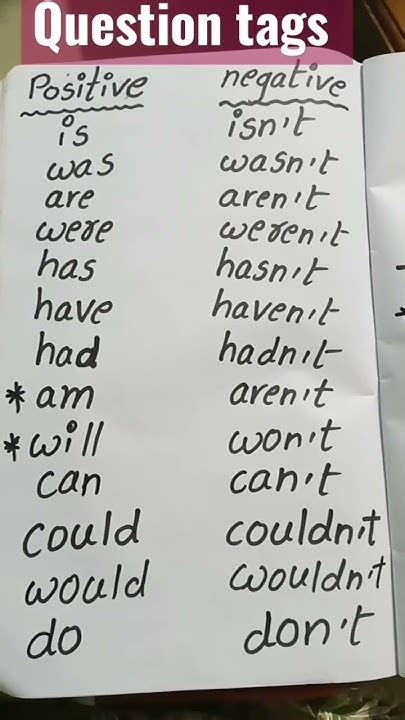 Question tags
Positive negative
is isn't
was wasn't
are aren't
were weren't
has hasn't
have haven't
had hadn't
* am aren't
* will won't
can can't
could couldn't
would wouldn't
do don't